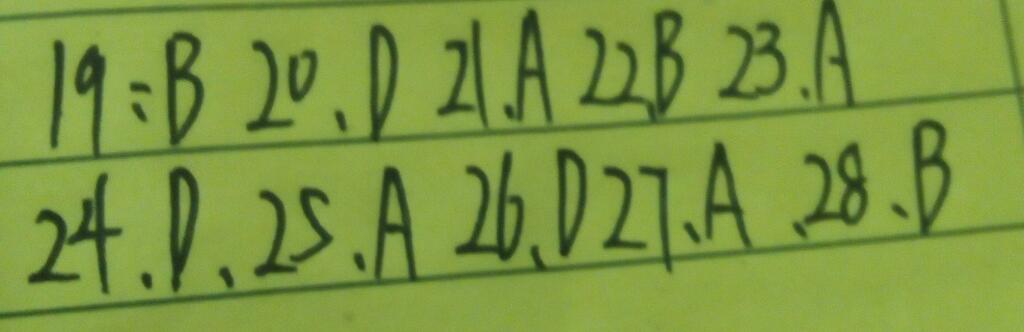 19:B 20.D 21.A 22.B 23.A
24.D.25.A 26.D 27.A .28.B